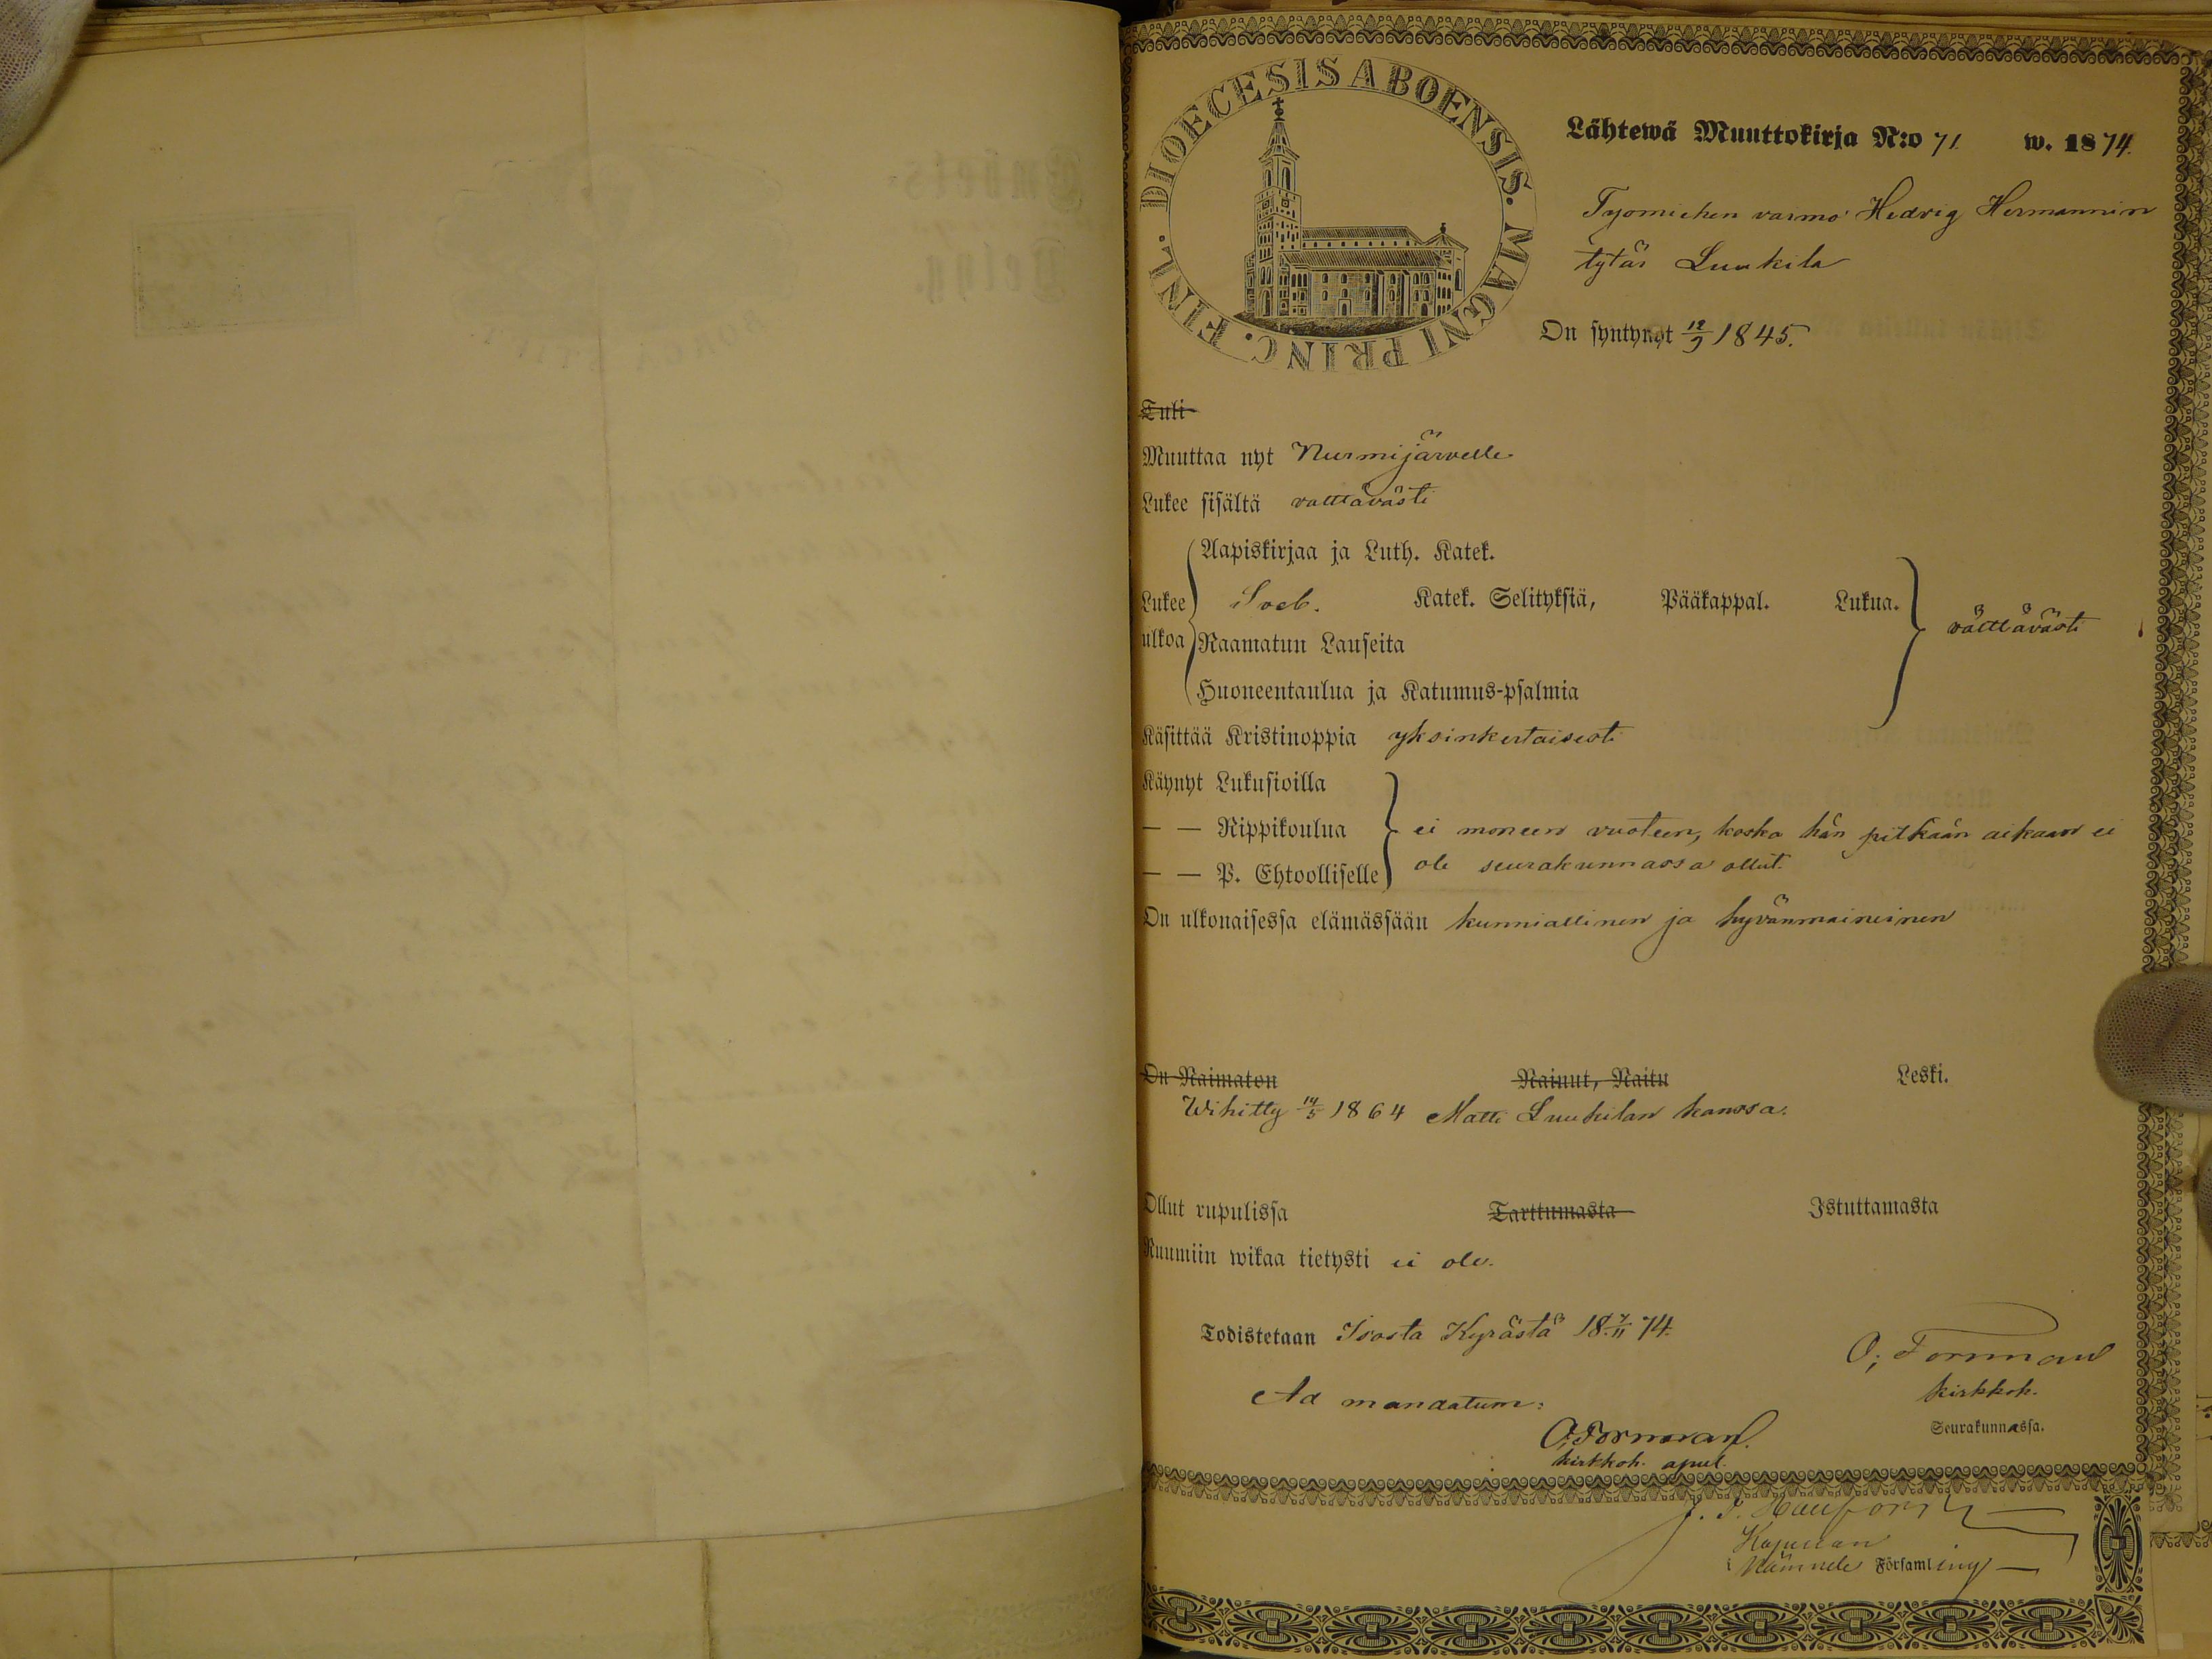 DIOECESIS ABOENSIS. MAGNI PRINC. FINL.
Lähtewä Muuttokirja N:o 71 w. 1874.
Tyomiehen vaimo Hedvig Hermannin
tytär Luukila
On syntynyt 12/9 1845.
Tuli
Muuttaa nyt Nurmijärvelle
Lukee sisältä välttävästi
Aapiskirjaa ja Luth. Katek.
Lukee Sveb. Katek. Selityksiä, Pääkappal. Lukua. välttävästi
ulkoa Raamatun Lauseita
Huoneentaulua ja Katumus-psalmia
Käsittää Kristinoppia yksinkertaisesti
Käynyt Lukusioilla
— — Rippikoulua ei moneen vuoteen, koska hän pitkään aikaan ei
— — P. Ehtoolliselle ole seurakunnassa ollut.
On ulkonaisessa elämässään kunniallinen ja hyvänmaineinen
On Naimaton Nainut, Naitu Leski.
Wihitty 14/5 1864 Matti Luukilan kanssa.
Ollut rupulissa Tarttumasta Istuttamasta
Ruumiin wikaa tietysti ei ole.
Todistetaan Isosta Kyrästä 18 7/11 74.
O. Forsman
kirkkoh.
Ad mandatum:
Seurakunnassa.
O. Forsman.
kirkkoh. apul.
Kapellan
Församling